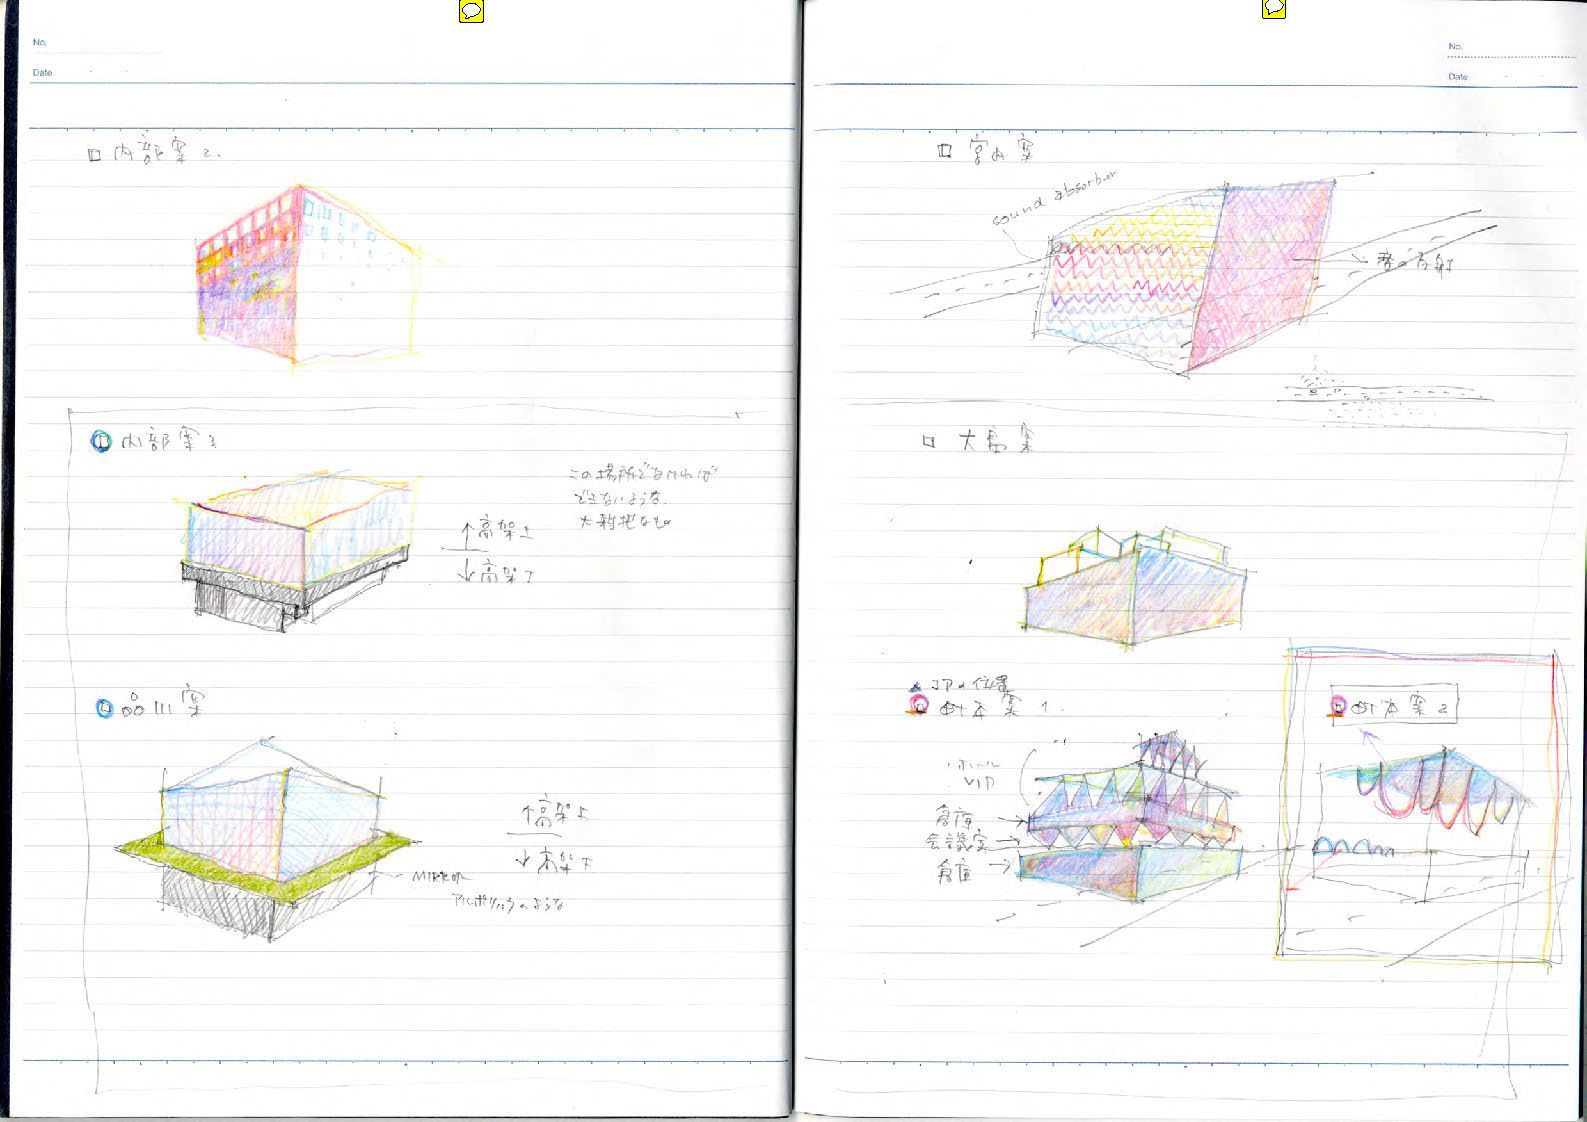 No.
Date
□ 内部案 2.
□ 内部案 3
この場所でなければ
できないような
大胆なもの
↑高架上
↓高架下
□ 品川案
↑高架上
↓高架下
MIRROR
のような
No.
Date
□ 宮内案
sound absorber
音の反射
□ 大島案
JPの位置
□ 竹本案 1.
ホール
VIP
倉庫
会議室
倉庫
□ 竹本案 2